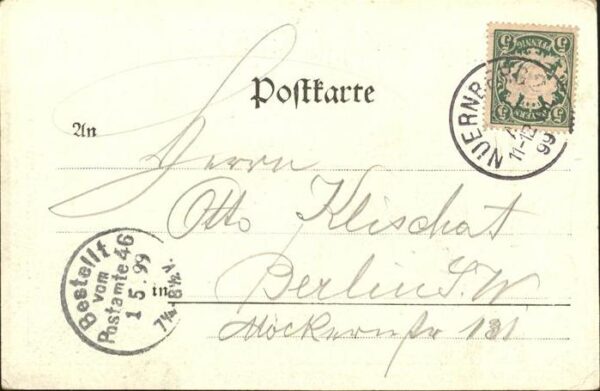 Postkarte
An
Herrn
Otto Klischat
in Berlin S.W
Möckernstr 131
NUERNB
11-12
99
5 PFENNIG 5
BAYERN
Bestellt
vom
Postamte 46
1 5.99
7¼-8½V.